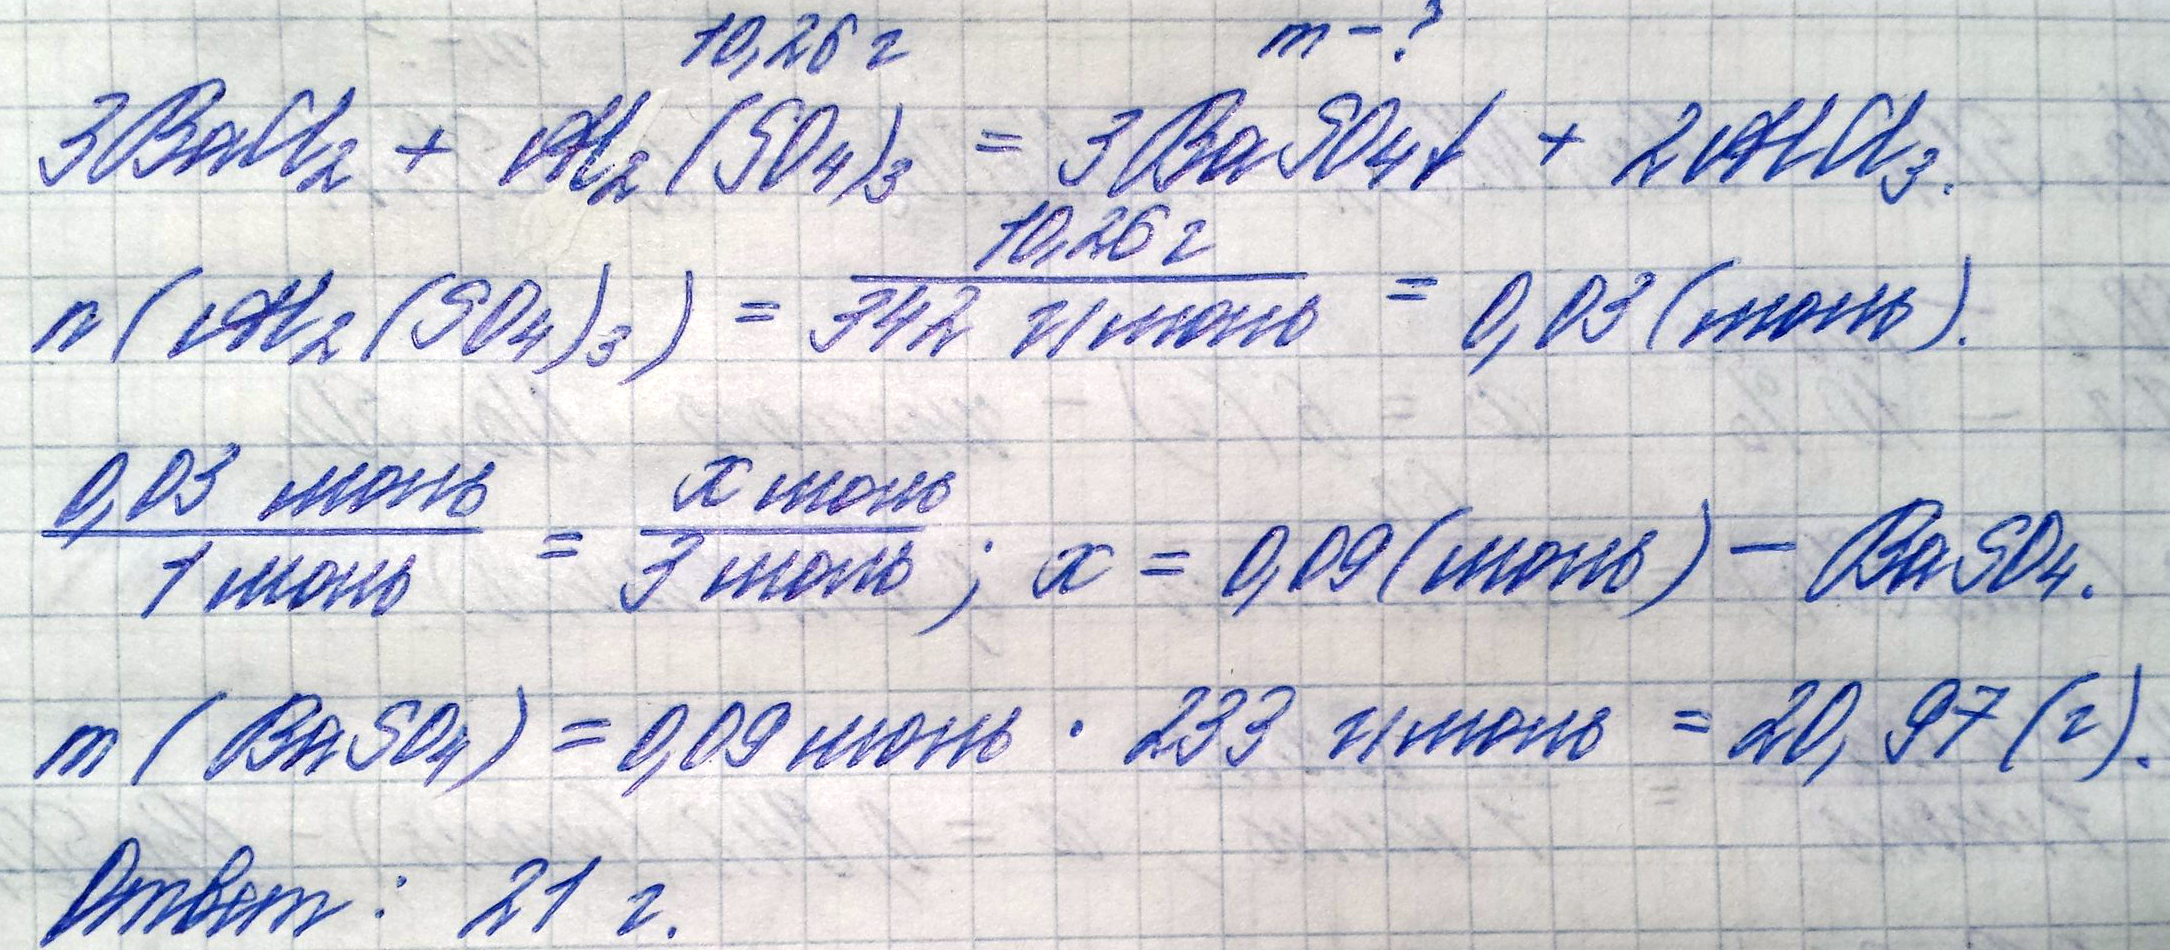 10,26 г m - ?
3BaCl₂ + Al₂(SO₄)₃ = 3BaSO₄↓ + 2AlCl₃.
n(Al₂(SO₄)₃) = 10,26 г / 342 г/моль = 0,03 (моль).
0,03 моль / 1 моль = x моль / 3 моль ; x = 0,09 (моль) – BaSO₄.
m(BaSO₄) = 0,09 моль · 233 г/моль = 20,97 (г).
Ответ: 21 г.